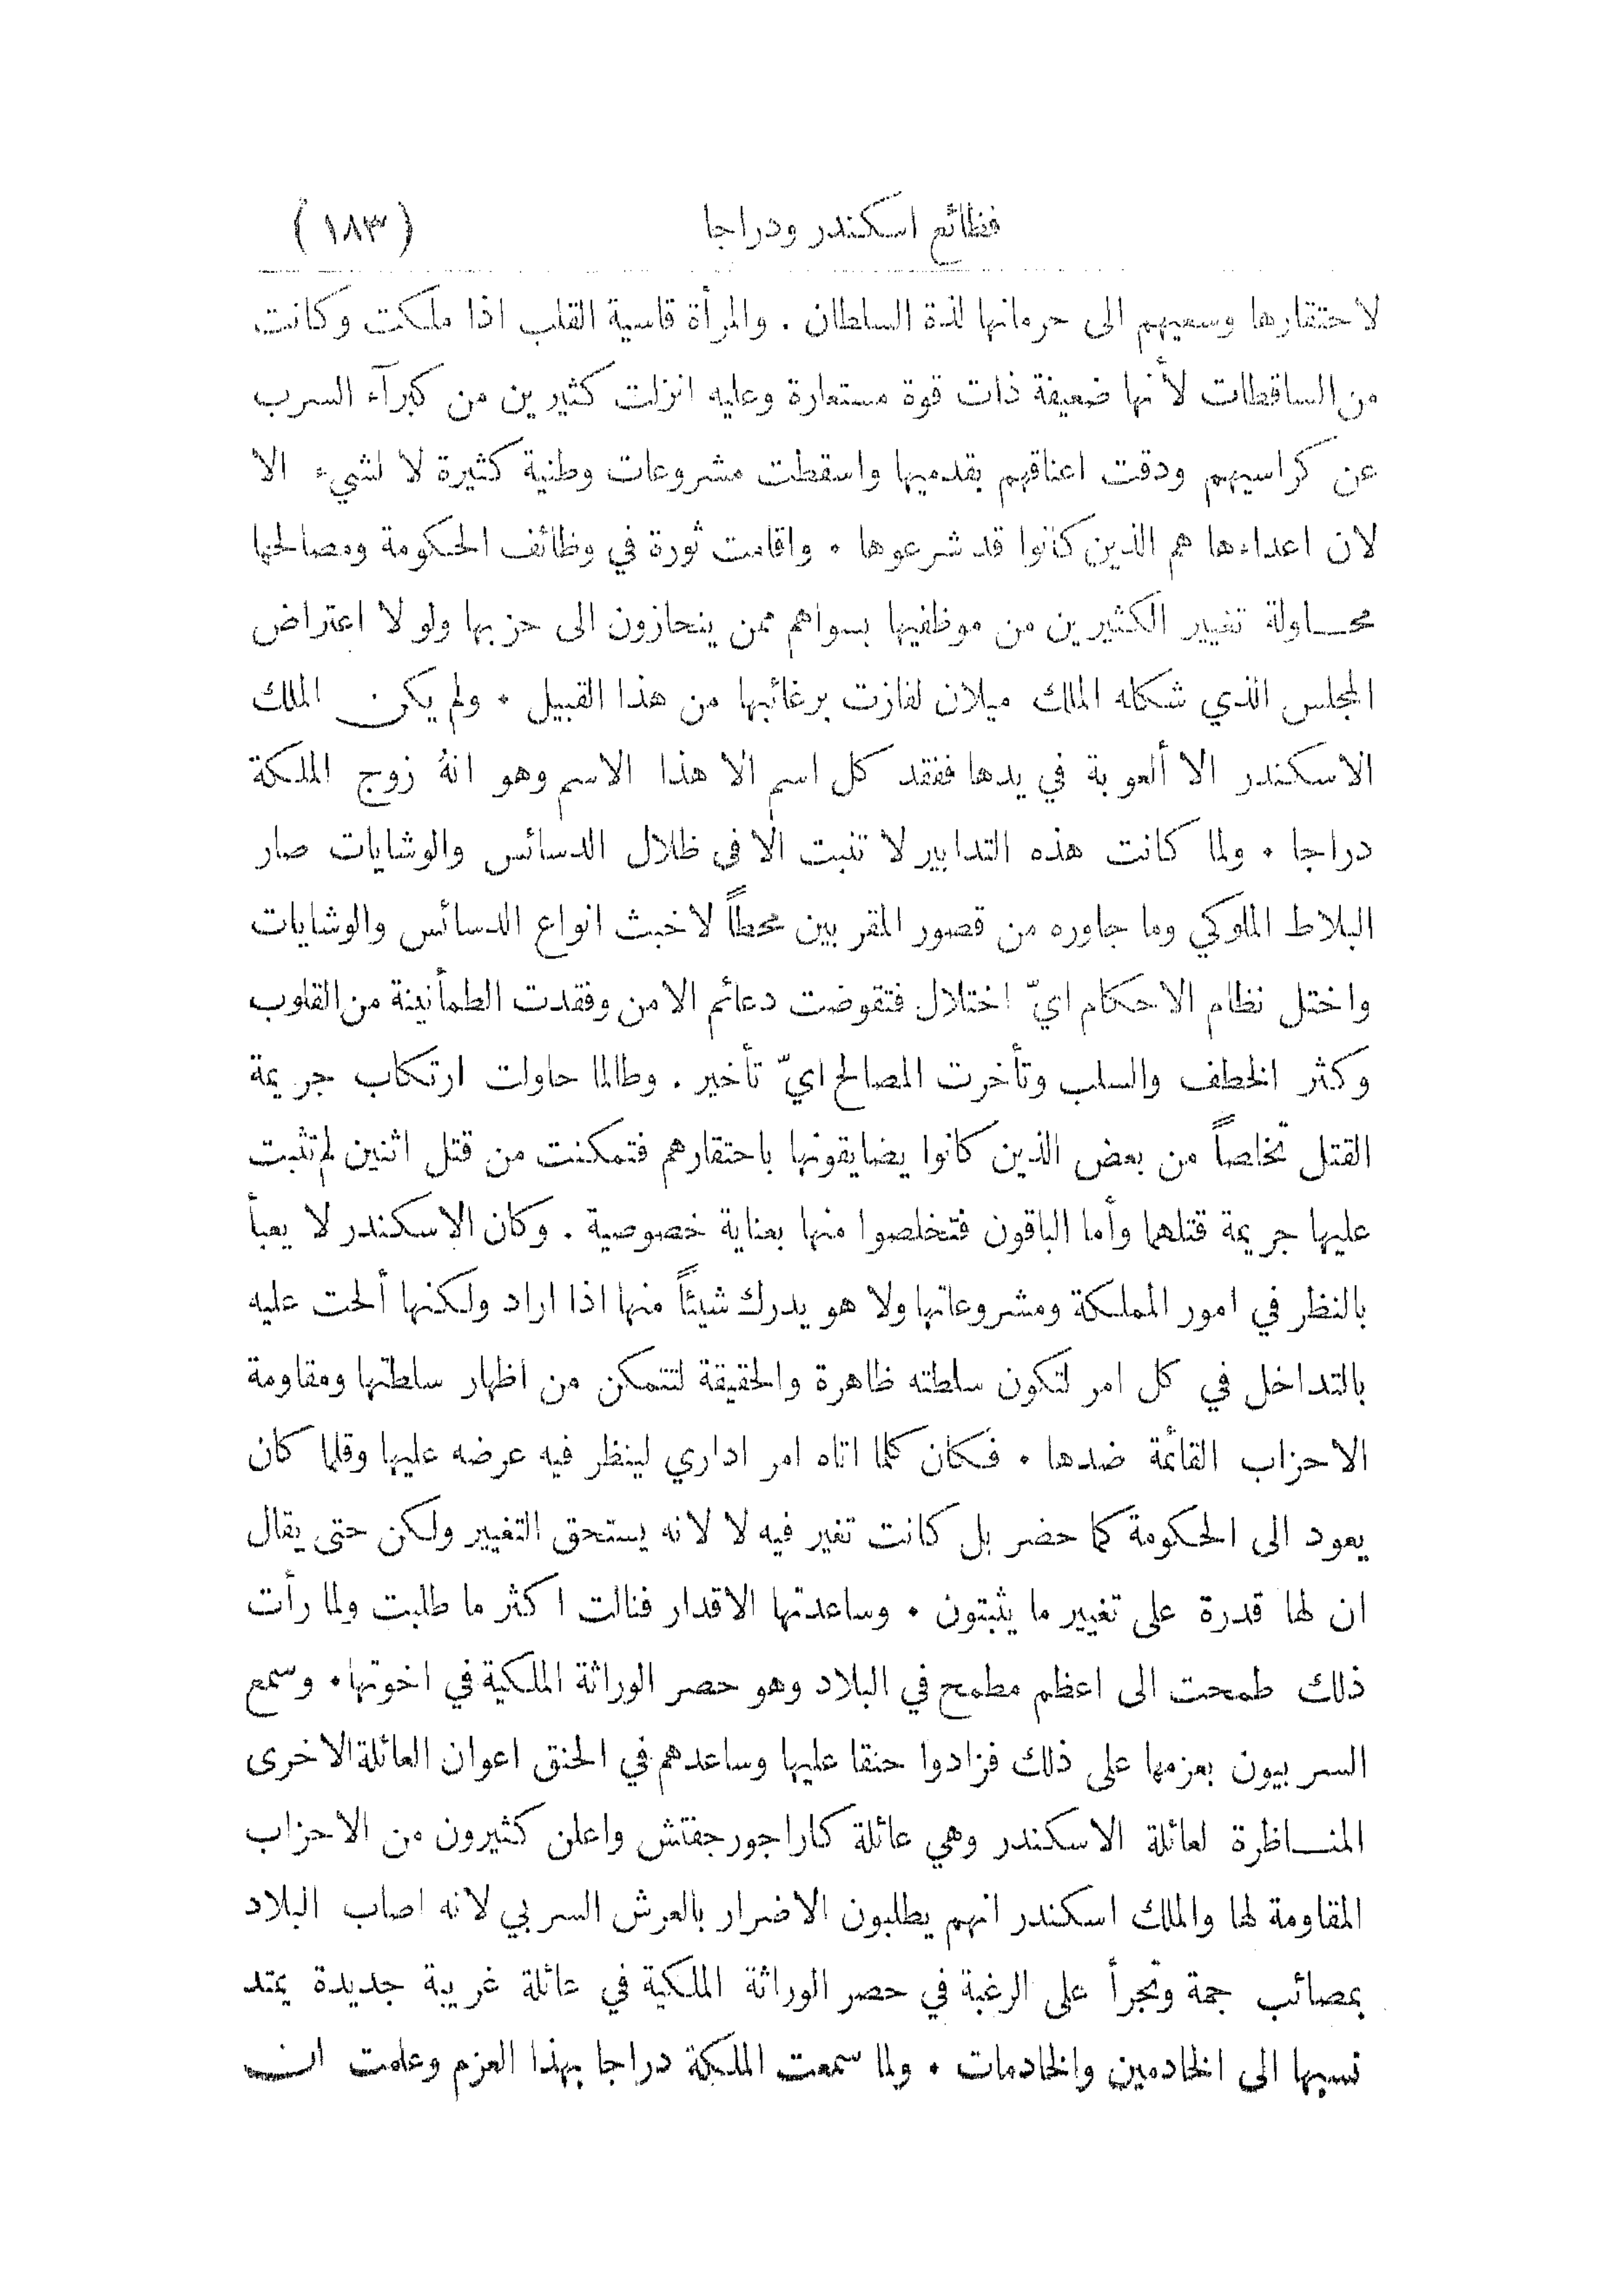 فظائع اسكندر ودراجا (١٨٣)
لاحتقارها وسعيهم الى حرمانها لذة السلطان . والمرأة قاسية القلب اذا ملكت وكانت
من الساقطات لأنها ضعيفة ذات قوة مستعارة وعليه انزلت كثيرين من كبرآء السرب
عن كراسيهم ودقت اعناقهم بقدميها واسقطت مشروعات وطنية كثيرة لا لشيء الا
لان اعداءها هم الذين كانوا قد شرعوها . واقامت ثورة في وظائف الحكومة ومصالحها
محاولة تغيير الكثيرين من موظفيها بسواهم ممن ينحازون الى حزبها ولولا اعتراض
المجلس الذي شكله الملك ميلان لفازت برغائبها من هذا القبيل . ولم يكن الملك
الاسكندر الا ألعوبة في يدها ففقد كل اسم الا هذا الاسم وهو انهُ زوج الملكة
دراجا . ولما كانت هذه التدابير لا تثبت الا في ظلال الدسائس والوشايات صار
البلاط الملوكي وما جاوره من قصور المقربين محطاً لاخبث انواع الدسائس والوشايات
واختل نظام الاحكام ايّ اختلال فتقوضت دعائم الامن وفقدت الطمأنينة من القلوب
وكثر الخطف والسلب وتأخرت المصالح ايّ تأخير . وطالما حاولت ارتكاب جريمة
القتل تخلصاً من بعض الذين كانوا يضايقونها باحتقارهم فتمكنت من قتل اثنين لم تثبت
عليها جريمة قتلهما وأما الباقون فتخلصوا منها بعناية خصوصية . وكان الاسكندر لا يعبأ
بالنظر في امور المملكة ومشروعاتها ولا هو يدرك شيئاً منها اذا اراد ولكنها ألحت عليه
بالتداخل في كل امر لتكون سلطته ظاهرة والحقيقة لتتمكن من اظهار سلطتها ومقاومة
الاحزاب القائمة ضدها . فكان كلما اتاه امر اداري لينظر فيه عرضه عليها وقلما كان
يعود الى الحكومة كما حضر بل كانت تغير فيه لا لانه يستحق التغيير ولكن حتى يقال
ان لها قدرة على تغيير ما يثبتون . وساعدتها الاقدار فنالت اكثر ما طلبت ولما رأت
ذلك طمحت الى اعظم مطمح في البلاد وهو حصر الوراثة الملكية في اخوتها . وسمع
السربيون بعزمها على ذلك فزادوا حنقا عليها وساعدهم في الحنق اعوان العائلة الاخرى
المناظرة لعائلة الاسكندر وهي عائلة كاراجورجفتش واعلن كثيرون من الاحزاب
المقاومة لها والملك اسكندر انهم يطلبون الاضرار بالعرش السربي لانه اصاب البلاد
بمصائب جمة وتجرأ على الرغبة في حصر الوراثة الملكية في عائلة غريبة جديدة يمتد
نسبها الى الخادمين والخادمات . ولما سمعت الملكة دراجا بهذا العزم وعلمت ان